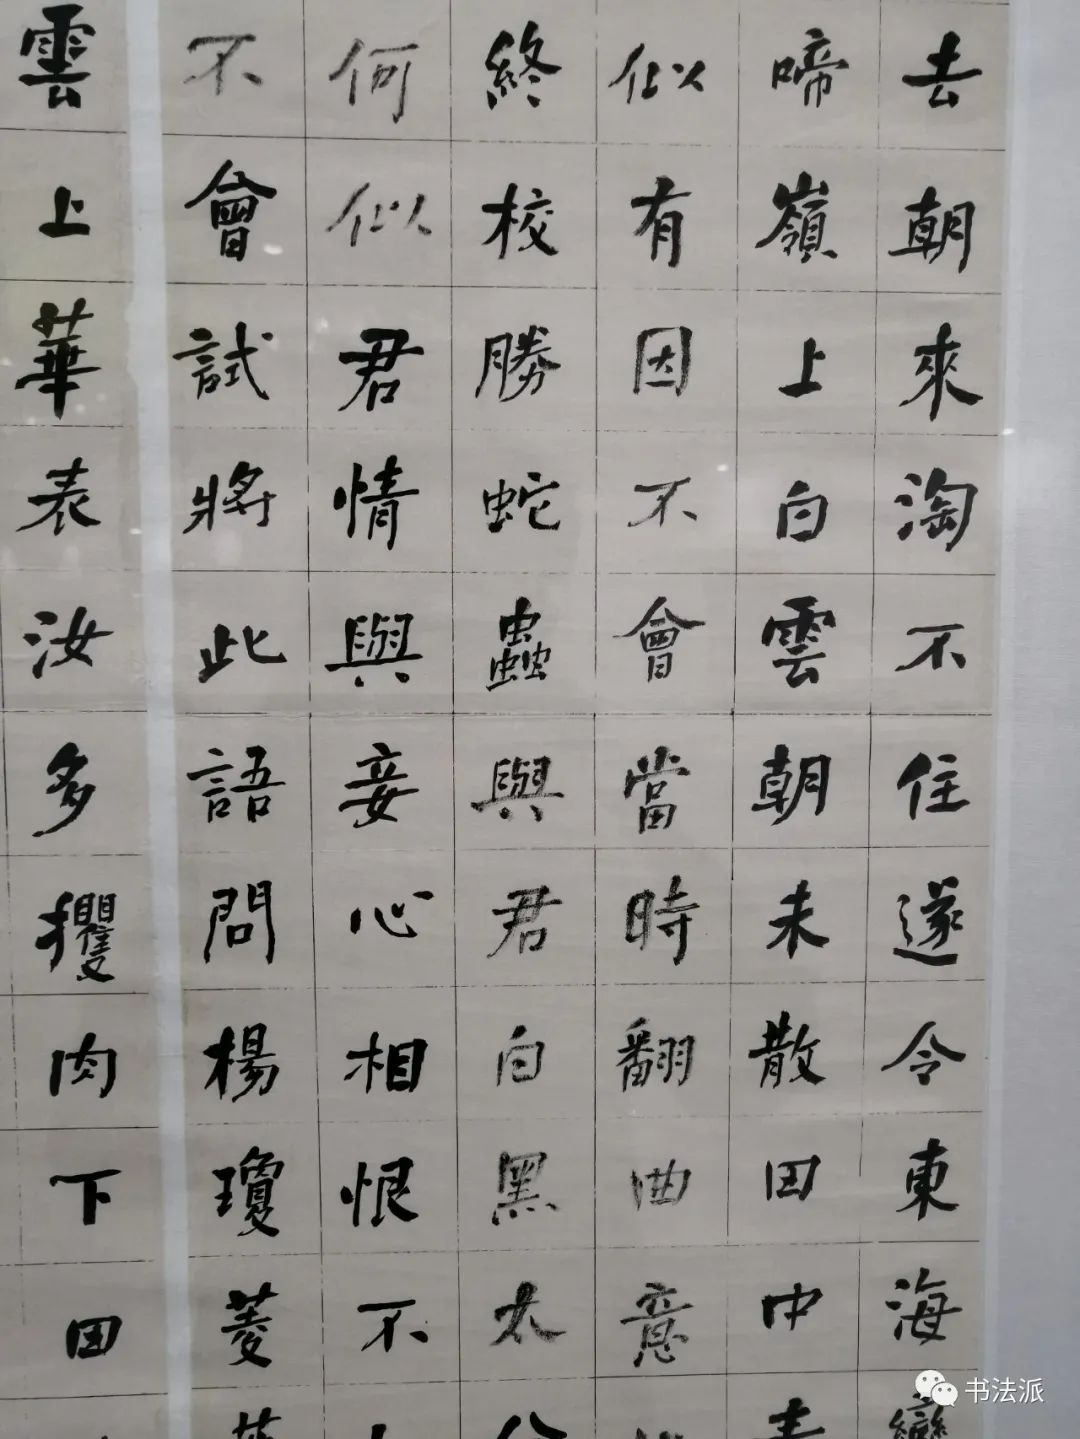 去朝來淘不住遂令東海
啼嶺上白雲朝未散田中青
似有因不會當時翻曲意
終校勝蛇蟲與君白黑太分
何似君情與妾心相恨不
不會試將此語問楊瓊菱
雲上華表汝多攫肉下田
书法派